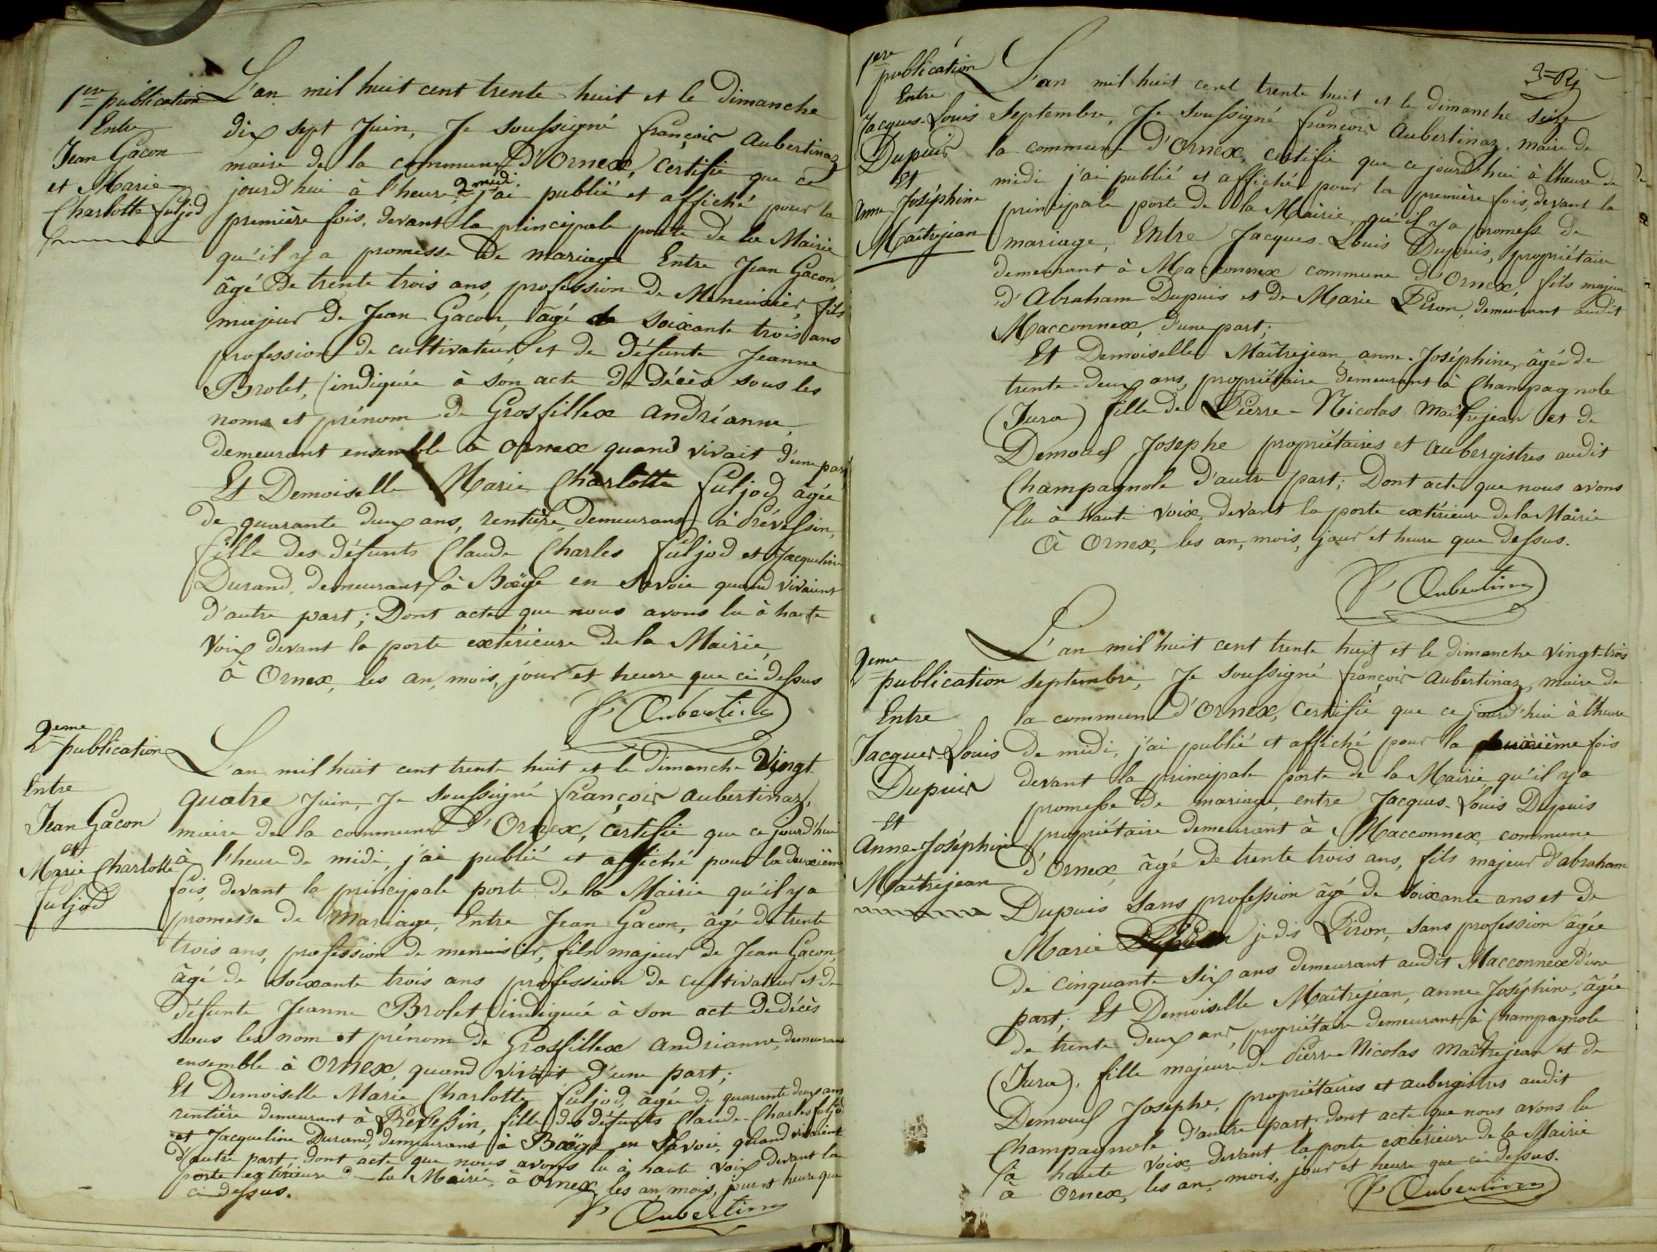 1ere publication
Entre
Jean Gacon
et Marie
Charlotte Fuljod
L'an mil huit cent trente huit et le dimanche
dix sept Juin, Je soussigné françois Aubertinaz
maire de la commune d'Ornex, certifie que ce
jourd'hui à l'heure de midi j'ai publié et affiché pour la
première fois, devant la principale porte de la Mairie
qu'il y a promesse de mariage Entre Jean Gacon,
âgé de trente trois ans, profession de Menuisier, fils
majeur de Jean Gacon, âgé de soixante trois ans
profession de cultivateur et de défunte Jeanne
Brolet, (indiquée à son acte de décès sous les
noms et prénom de Grosfillex andréanne,
demeurant ensemble à ornex quand vivait d'une part
Et Demoiselle Marie Charlotte fuljod âgée
de quarante deux ans, rentière, demeurant à Prévessin,
fille des défunts Claude Charles fuljod et Jacqueline
Durand, demeurant à Boëge en Savoie quand vivaient
d'autre part; Dont acte que nous avons lu à haute
voix devant la porte extérieure de la Mairie,
à Ornex, les an, mois, jour et heure que ci dessus
F. Aubertinaz
2eme publication
Entre
Jean Gacon
et
Marie Charlotte
fuljod
L'an mil huit cent trente huit et le dimanche vingt
quatre Juin, Je soussigné françois aubertinaz,
maire de la commune d'Ornex, certifie que ce jourd'hui
à l'heure de midi, j'ai publié et affiché pour la deuxième
fois, devant la principale porte de la Mairie qu'il y a
promesse de Mariage, Entre Jean Gacon, âgé de trente
trois ans, profession de menuisier, fils majeur de Jean Gacon,
âgé de soixante trois ans profession de cultivateur et de
défunte Jeanne Brolet, (indiquée à son acte de décès
sous les nom et prénom de Grosfillex andrianne, demeurant
ensemble à ornex, quand vivait d'une part;
Et Demoiselle Marie Charlotte fuljod, agée de quarante deux ans
rentière demeurant à Prévessin, fille des défunts Claude-Charles fuljod
et Jacqueline Durand, demeurans à Boëge en Savoie, quand vivaient
d'autre part, dont acte que nous avons lu à haute voix devant la
porte extérieure de la Mairie, à ornex, les an, mois, jour et heure que
ci dessus.
F. Aubertinaz
1ere publication
Entre
Jacques-Louis
Dupuis
Et
anne-Joséphine
Maîtrejean
L'an mil huit cent trente huit et le dimanche seize
Septembre, Je soussigné françois Aubertinaz, maire de
la commune d'Ornex, certifie que ce jourd'hui à l'heure de
midi j'ai publié et affiché pour la première fois, devant la
principale porte de la Mairie, qu'il y a promesse de
mariage, Entre Jacques-Louis Dupuis, propriétaire
demeurant à Macconnex commune d'Ornex, fils majeur
d'Abraham Dupuis et de Marie Piron, demeurant audit
Macconnex, d'une part;
Et Demoiselle Maîtrejean, anne-Joséphine, âgée de
trente-deux ans, propriétaire demeurant à Champagnole
(Jura) fille de Pierre-Nicolas Maîtrejean et de
Demouel Josephe propriétaires et aubergistes audit
Champagnole d'autre part; Dont acte que nous avons
lu à haute voix, devant la porte extérieure de la Mairie
à Ornex, les an, mois, jour et heure que dessus.
F. Aubertinaz
2eme
publication
Entre
Jacques-Louis
Dupuis
Et
Anne-Joséphine
Maîtrejean
L'an mil huit cent trente huit et le dimanche vingt-trois
septembre, Je soussigné françois aubertinaz, maire de
la commune d'Ornex, certifie que ce jourd'hui à l'heure
de midi, j'ai publié et affiché pour la deuxième fois
devant la principale porte de la Mairie qu'il y a
promesse de mariage, entre Jacques-Louis Dupuis
propriétaire demeurant à Macconnex, commune
d'Ornex, âgé de trente trois ans, fils majeur d'abraham
Dupuis sans profession âgé de soixante ans et de
Marie je dis Piron, sans profession âgée
de cinquante six ans demeurant audit Macconnex d'une
part; Et Demoiselle Maîtrejean, anne Joséphine, âgée
de trente deux ans, propriétaire demeurant à Champagnole
(Jura), fille majeure de Pierre-Nicolas Maîtrejean et de
Demouel Josephe, propriétaires et aubergistes audit
Champagnole d'autre part, dont acte que nous avons lu
à haute voix devant la porte extérieure de la Mairie
à Ornex, les an, mois, jour et heure que ci dessus.
F. Aubertinaz